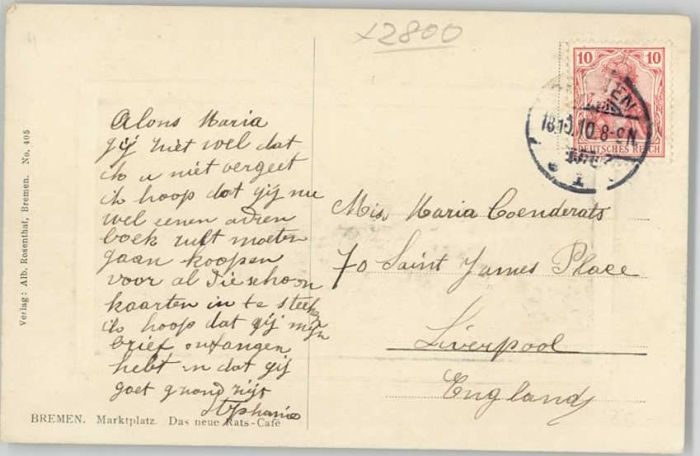 x2800
10 10
DEUTSCHES REICH
18.10.10.8-9N
Alons Maria
gij niet wel dat
ik u niet vergeet
ik hoop dat gij nu
wel eenen
boek zult moeten
gaan koopen
voor al die schoon
kaarten in te steeken
ik hoop dat gij mijn
brief ontfangen
hebt in dat gij
goet gezond zijt
Stephanie
Mis. Maria Coenderats
70 Saint James Place
Liverpool
England
Verlag: Alb. Rosenthal, Bremen. No. 405
BREMEN. Marktplatz. Das neue Rats-Café